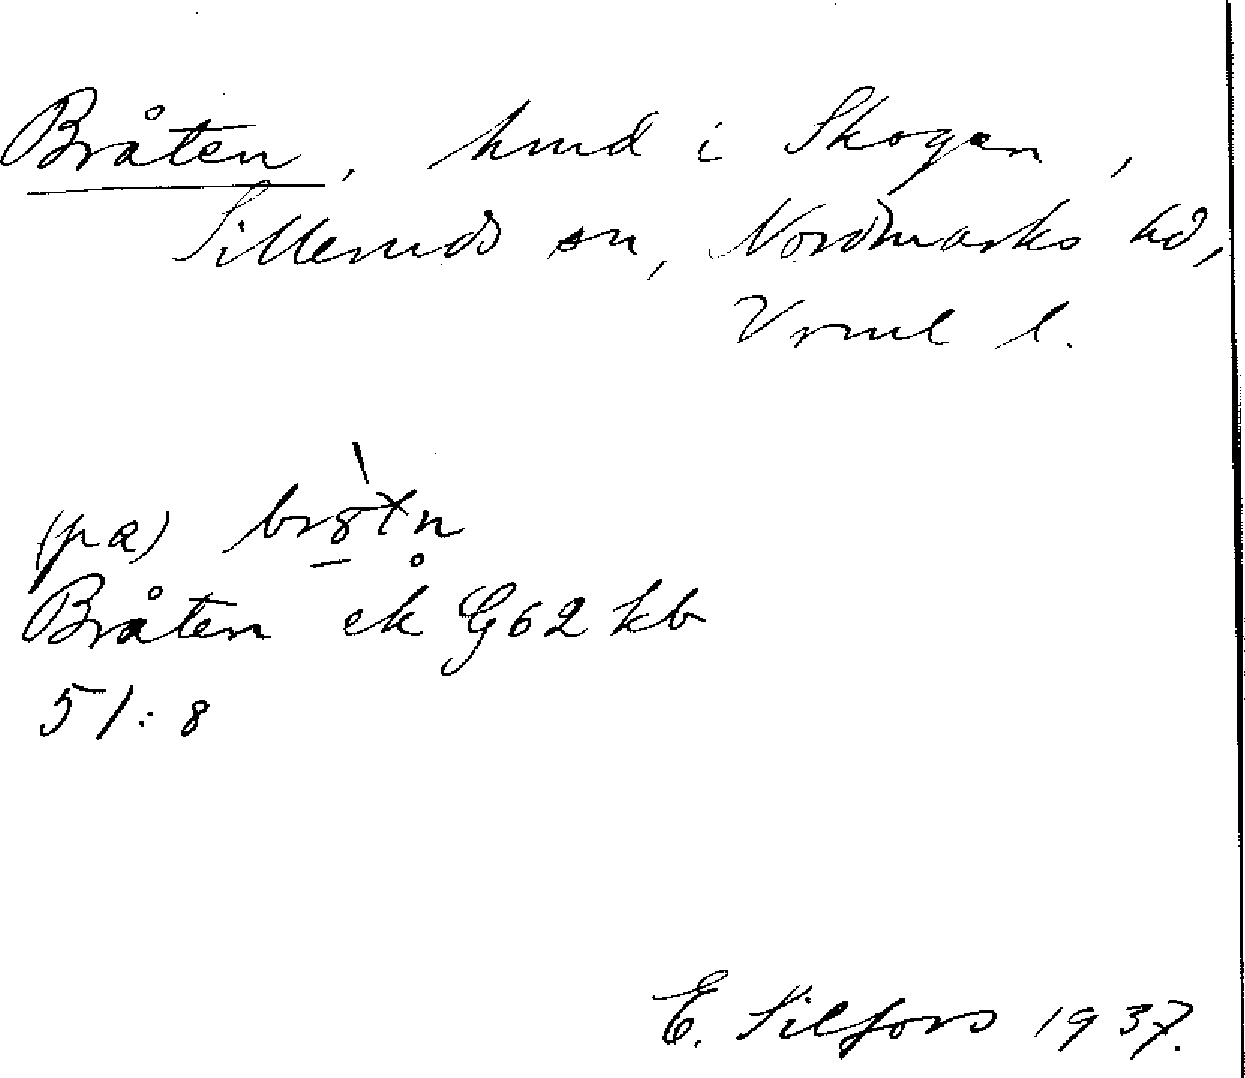 Bråten, hmd i Skogen,
Silleruds sn, Nordmarks hd,
Vrml l.
(pa) brötn̥
Bråten ek G62 kb
51:8
E. Silfors 1937.